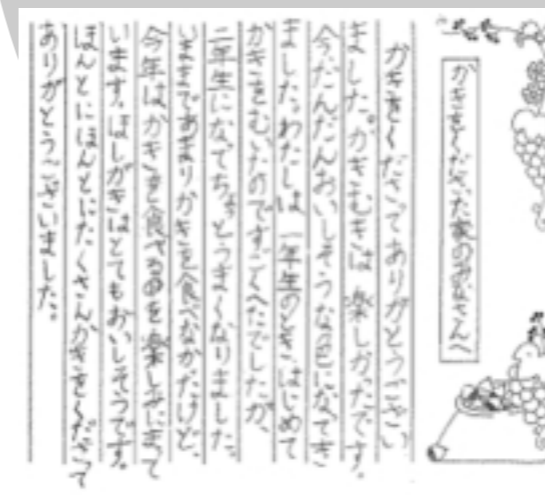 かきをくださった家のみなさんへ
かきをくださってありがとうござい
ました。かきむきは、楽しかったです。
今、だんだんおいしそうな色になってき
ました。わたしは、一年生のとき、はじめて
かきをむいたのですごくへたでしたが、
二年生になってちょっとうまくなりました。
いままであまりかきを食べなかったけど、
今年はかきを食べる日を楽しみにまって
います。ほしがきはとてもおいしそうです。
ほんとにほんとにたくさんかきをくださって
ありがとうございました。